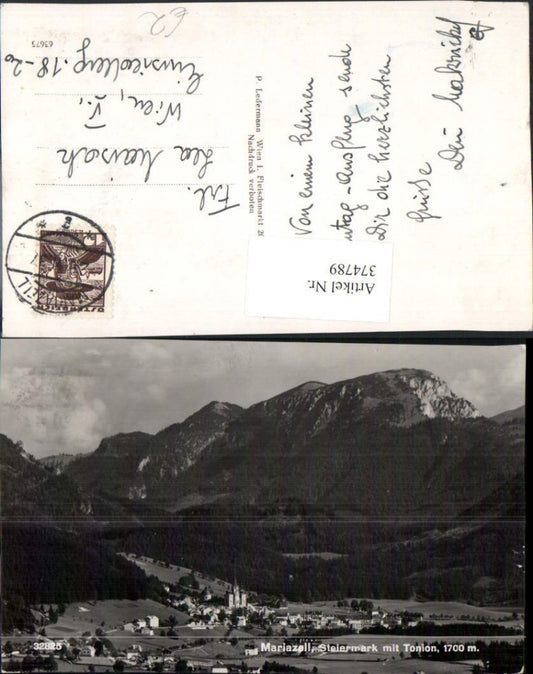 €2
63675
Frl.
Lea
Wien, V.,
Einsiedlerg. 18-20
P. Ledermann Wien I. Fleischmarkt 20
Nachdruck verboten
Von einem kleinen
ntag-ausflug sende
Dir die herzlichsten
Grüße
Dein
Artikel Nr.
374789
ÖSTERREICH
32825
Mariazell, Steiermark mit Tonion, 1700 m.